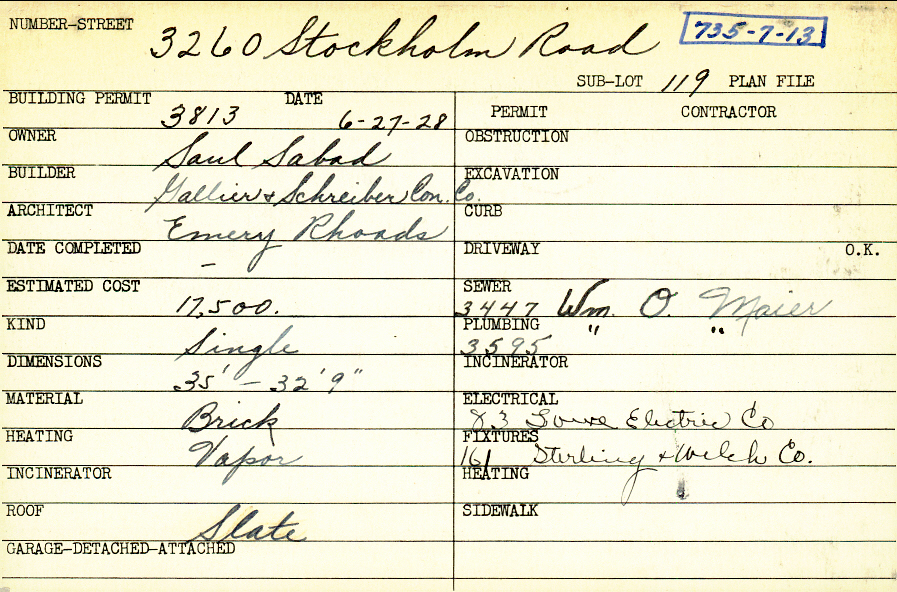 NUMBER-STREET 3260 Stockholm Road 735-7-13
SUB-LOT 119 PLAN FILE
BUILDING PERMIT 3813 DATE 6-27-28
PERMIT CONTRACTOR
OWNER Saul Sabad
OBSTRUCTION
BUILDER Gallier & Schreiber Con. Co.
EXCAVATION
ARCHITECT Emery Rhoads
CURB
DATE COMPLETED -
DRIVEWAY O.K.
ESTIMATED COST 17,500.
SEWER 3447 Wm. O. Maier
KIND Single
PLUMBING 3595 " "
DIMENSIONS 35' - 32' 9"
INCINERATOR
MATERIAL Brick
ELECTRICAL 83 Electric Co
HEATING Vapor
FIXTURES 161 Sterling & Welch Co.
INCINERATOR
HEATING
ROOF Slate
SIDEWALK
GARAGE-DETACHED-ATTACHED